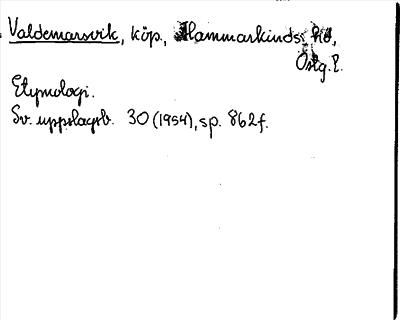 Valdemarsvik, köp., Hammarkinds hd,
Östg. l.
Etymologi.
Sv. uppslagsb. 30 (1954), sp. 862f.